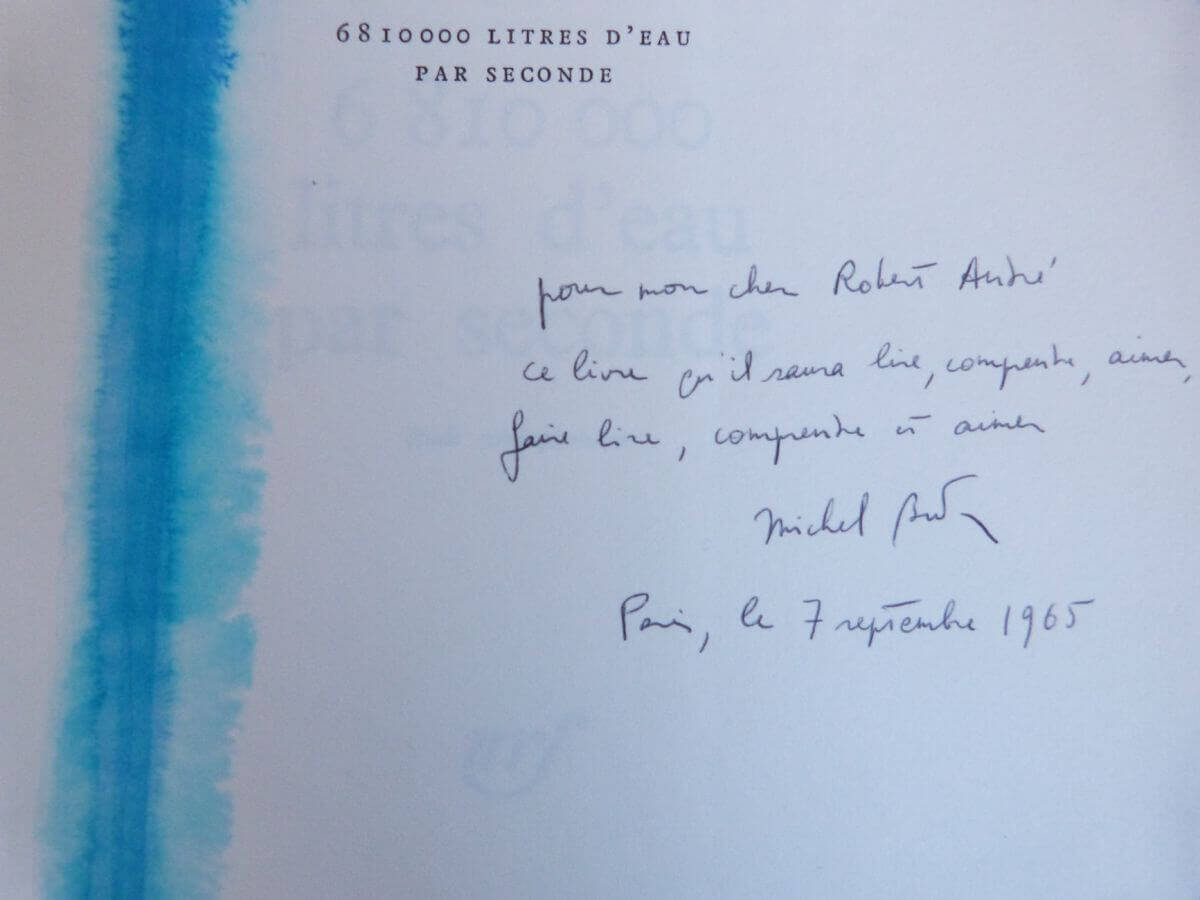 6810000 LITRES D'EAU
PAR SECONDE
6 810 000
litres d'eau
par seconde
pour mon cher Robert André
ce livre qu'il saura lire, comprendre, aimer,
faire lire, comprendre et aimer
Michel Butor
Paris, le 7 septembre 1965
nrf